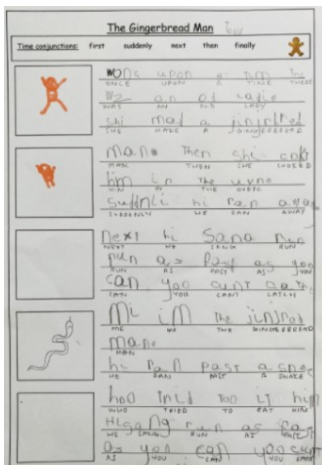 The Gingerbread Man
Time conjunctions: first suddenly next then finally
wons upon a tim
ONCE UPON A TIME THERE
wz an od
WAS AN OLD LADY
shi mad a
SHE MADE A GINGERBREAD
man. Then shi
MAN THEN SHE COOKED
him in the
HIM IN THE OVEN
hi ran
SUDDENLY HE RAN AWAY
Next hi sang run
NEXT HE SANG RUN
run as fast as you
RUN AS FAST AS YOU
can. you cant
CAN YOU CANT CATCH
Mi im the
ME IM THE GINGERBREAD
man.
MAN
hi ran past a
HE RAN PAST A SNAKE
hoo too it him
WHO TRIED TO EAT HIM
He sang run as fast
HE SANG RUN AS FAST
as you can you cant
AS YOU CAN YOU CANT